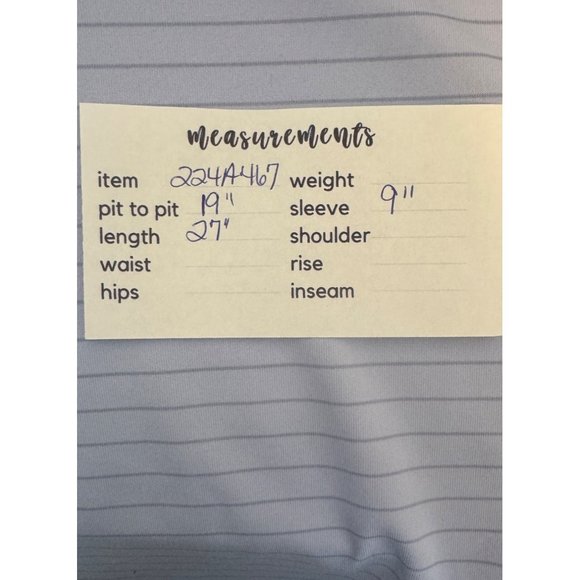 measurements
item 224A467 weight
pit to pit 19" sleeve 9"
length 27" shoulder
waist rise
hips inseam